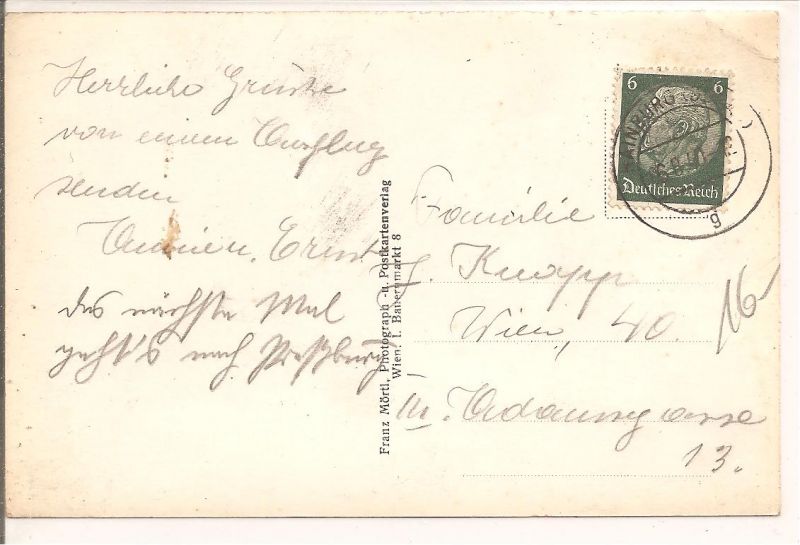 Herzliche Grüße
von einem Ausflug
senden
Ernst
das nächste Mal
geht's nach Preßburg
Franz Mörtl, Photograph -u. Postkartenverlag
Wien. I. Bauernmarkt 8
6 6
Deutsches Reich
g
Familie
J. Knapp
Wien, 40.
III. Adamsgasse
13.
16